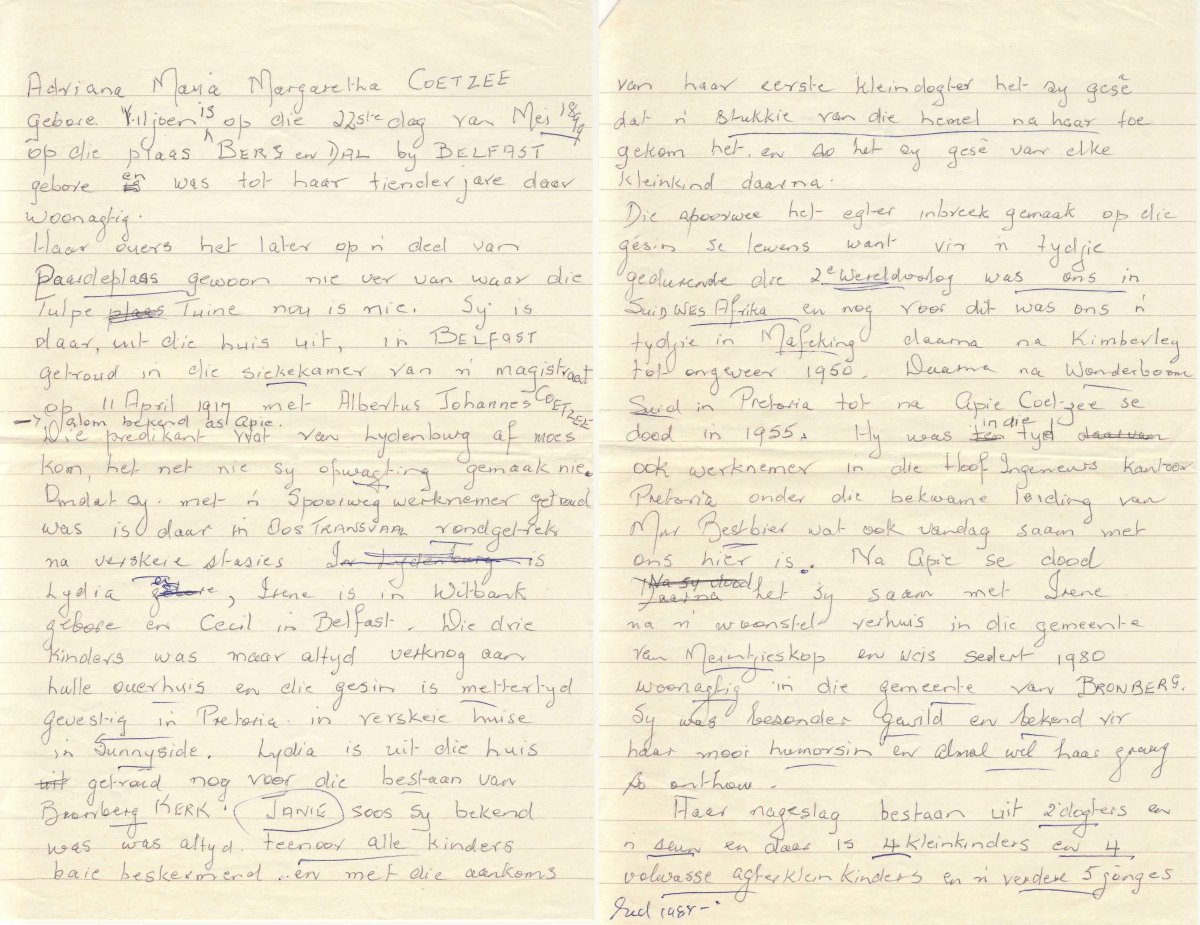 Adriana Maria Margaretha COETZEE
gebore Viljoen is op die 22ste dag van Mei 1899
op die plaas BERG en DAL by BELFAST
gebore en was tot haar tienderjare daar
woonagtig.
Haar ouers het later op 'n deel van
Paardeplaas gewoon nie ver van waar die
Tulpe plaas Tuine nou is nie. Sy is
daar, uit die huis uit, in BELFAST
getroud in die siekekamer van 'n magistraat
op 11 April 1917 met Albertus Johannes COETZEE
→ alom bekend as Apie.
Die predikant wat van Lydenburg af moes
kom, het net nie sy opwagting gemaak nie.
Omdat sy met 'n Spoorweg werknemer getroud
was is daar in OOS TRANSVAAL rondgetrek
na verskeie stasies In Lydenburg is
Lydia gebore en, Irene is in Witbank
gebore en Cecil in Belfast. Die drie
kinders was maar altyd verknog aan
hulle ouerhuis en die gesin is mettertyd
gevestig in Pretoria in verskeie huise
in Sunnyside. Lydia is uit die huis
uit getroud nog voor die bestaan van
Bronberg KERK. JANIE soos sy bekend
was was altyd teenoor alle kinders
baie beskermend en met die aankoms
van haar eerste kleindogter het sy gesê
dat 'n stukkie van die hemel na haar toe
gekom het. en so het sy gesê van elke
kleinkind daarna.
Die spoorweë het egter inbreek gemaak op die
gesin se lewens want vir 'n tydjie
gedurende die 2e Wereldoorlog was ons in
SUID WES Afrika en nog voor dit was ons 'n
tydjie in Mafeking daarna na Kimberley
tot ongeveer 1950. Daarna na Wonderboom
Suid in Pretoria tot na Apie Coetzee se
dood in 1955. Hy was ten in die tyd daarvan
ook werknemer in die Hoof Ingenieurs kantoor
Pretoria onder die bekwame leiding van
Mnr Bestbier wat ook vandag saam met
ons hier is. Na Apie se dood
Na sy dood
Daarna het sy saam met Irene
na 'n woonstel verhuis in die gemeente
van Meintjieskop en was sedert 1980
woonagtig in die gemeente van BRONBERG.
Sy was besonder gewild en bekend vir
haar mooi humorsin en almal wil haar graag
so onthou.
Haar nageslag bestaan uit 2 dogters en
'n seun en daar is 4 kleinkinders en 4
volwasse agterkleinkinders en 'n verdere 5 jonges
1988